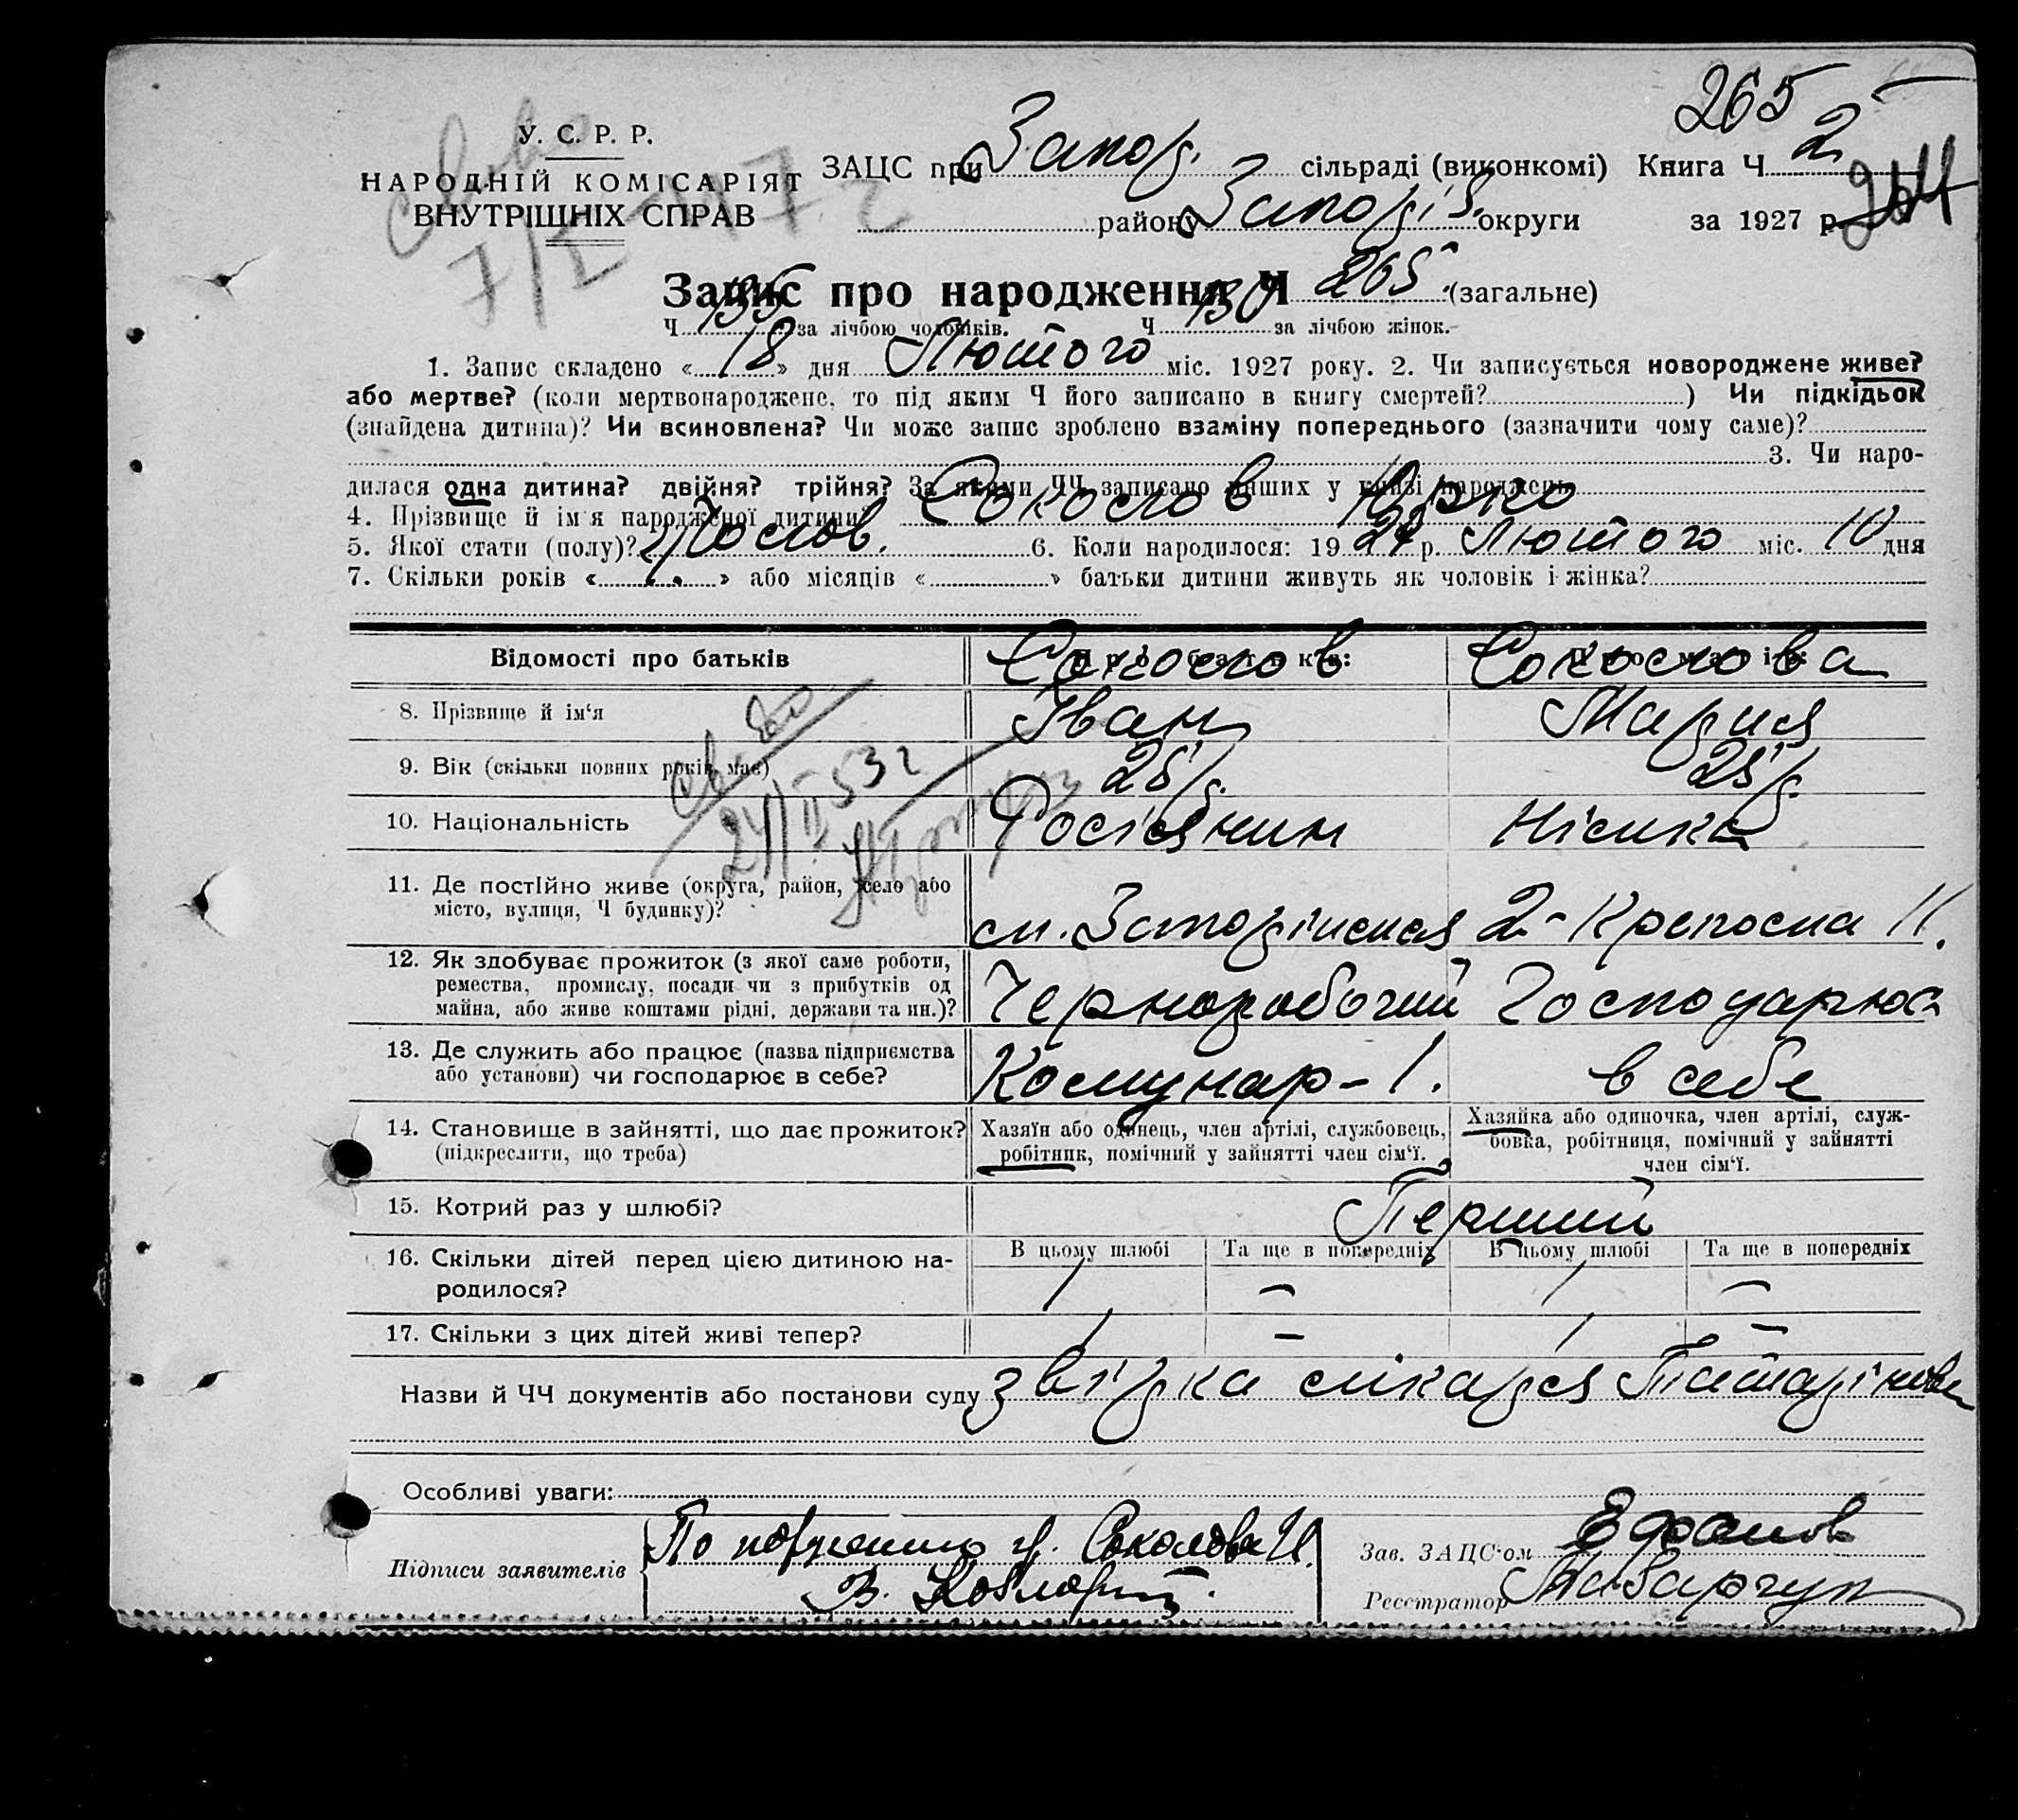 265
У. С. Р. Р.
НАРОДНІЙ КОМІСАРІЯТ
ВНУТРІШНІХ СПРАВ
ЗАЦС при Запор. сільраді (виконкомі) Книга Ч 2
району Запоріз. округи за 1927 р. 264
Запис про народження Ч 265 (загальне)
Ч 135 за лічбою чоловіків. Ч 130 за лічбою жінок.
1. Запис складено «18» дня Лютого міс. 1927 року. 2. Чи записується новороджене живе?
або мертве? (коли мертвонароджене, то під яким Ч його записано в книгу смертей? ) Чи підкідьок
(знайдена дитина)? Чи всиновлена? Чи може запис зроблено взаміну попереднього (зазначити чому саме)?
3. Чи наро-
дилася одна дитина? двійня? трійня? За якими ЧЧ записано инших у книзі народжень
4. Прізвище й ім'я народженої дитини? Соколов Юрко
5. Якої стати (полу)? Чолов. 6. Коли народилося: 1927 р. Лютого міс. 10 дня
7. Скільки років « » або місяців « » батьки дитини живуть як чоловік і жінка?
Відомості про батьків Соколов Соколова
8. Прізвище й ім'я Іван Мария
9. Вік (скільки повних років має) 25 р. 25 р.
10. Національність Росіянин Німка
11. Де постійно живе (округа, район, село або
місто, вулиця, Ч будинку)? 2-Крепосна 11.
12. Як здобуває прожиток (з якої саме роботи,
ремества, промислу, посади чи з прибутків од
майна, або живе коштами рідні, держави та ин.)? Чернорабочий Господарює
13. Де служить або працює (назва підприємства
або установи) чи господарює в себе? Комунар-1. в себе
14. Становище в зайнятті, що дає прожиток?
(підкреслити, що треба)
Хазяїн або одинець, член артілі, службовець,
робітник, помічний у зайнятті член сім'ї.
Хазяйка або одиночка, член артілі, служ-
бовка, робітниця, помічний у зайнятті
член сім'ї.
15. Котрий раз у шлюбі? Перший
16. Скільки дітей перед цією дитиною на-
родилося?
В цьому шлюбі Та ще в попередніх В цьому шлюбі Та ще в попередніх
1 – 1 –
17. Скільки з цих дітей живі тепер? 1 – 1 –
Назви й ЧЧ документів або постанови суду звірка лікаря
Особливі уваги:
Підписи заявителів По поручению гр. Соколова И.
Зав. ЗАЦС'ом
Реєстратор